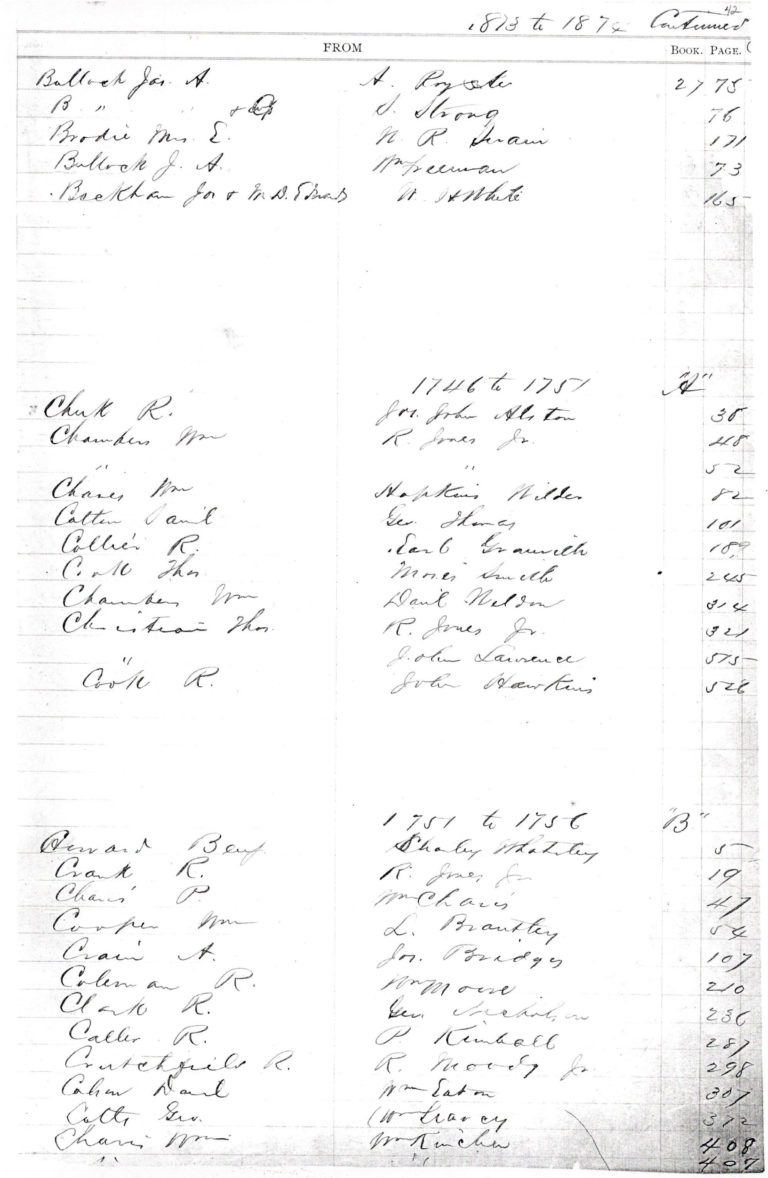 42
1873 to 1874 Continued
FROM BOOK. PAGE.
Bullock Jas. A. A. Royster 27 75
B " " & S. Strong 76
Brodie Mrs. E. N. R. Swain 171
Bullock J. A. Wm Freeman 73
Beckham Jos & M. D. Edwards W. H White 165
1746 to 1751 "A"
Cheek R. Jos. John Alston 38
Chambers Wm R. Jones Jr. 48
" " 52
Chaves Wm Hopkins Wilder 82
Cotten Geo. Thomas 101
Collier R. Earl Granville 189
Cook Thos. Moses Smith 245
Chambers Wm Danl Weldon 314
Christian Thos. R. Jones Jr. 321
" John Lawrence 575
Cook R. John Hawkins 526
1751 to 1756 "B"
Howard Benj. 5
Crank R. R. Jones Jr 19
Chavis P. Wm Chavis 47
Cooper Wm L. Brantley 54
Crain A. Jos. Bridges 107
Coleman R. Wm Moore 210
Clark R. Geo Nicholson 236
Caller R. P Kimball 287
Crutchfield R. R. Moody Jr 298
Danl Wm Eaton 307
Cotts Geo. Wm 372
Chavis Wm Wm Kinchen 408
" " 407